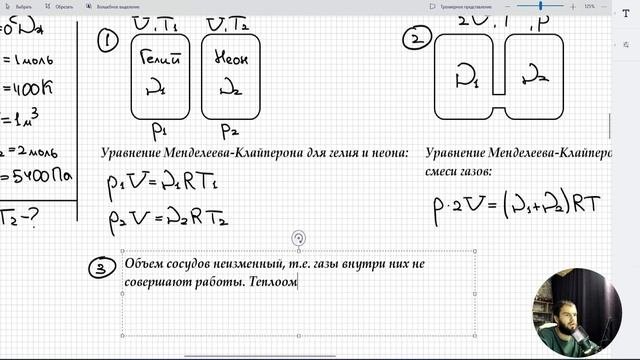 Выбрать
Волшебное выделение
Трехмерное представление
125%
=0°
= 1 моль
= 400К
= 1м³
₂ = 2 моль
= 5400 Па
T₂ - ?
1
V, T₁
V, T₂
Гелий
Неон
ν₁
ν₂
p₁
p₂
2
2V, T, p
ν₁
ν₂
Уравнение Менделеева-Клайперона для гелия и неона:
p₁V = ν₁RT₁
p₂V = ν₂RT₂
Уравнение Менделеева-Клайперо
смеси газов:
p·2V = (ν₁+ν₂)RT
3
Объем сосудов неизменный, т.е. газы внутри них не
совершают работы. Теплоом